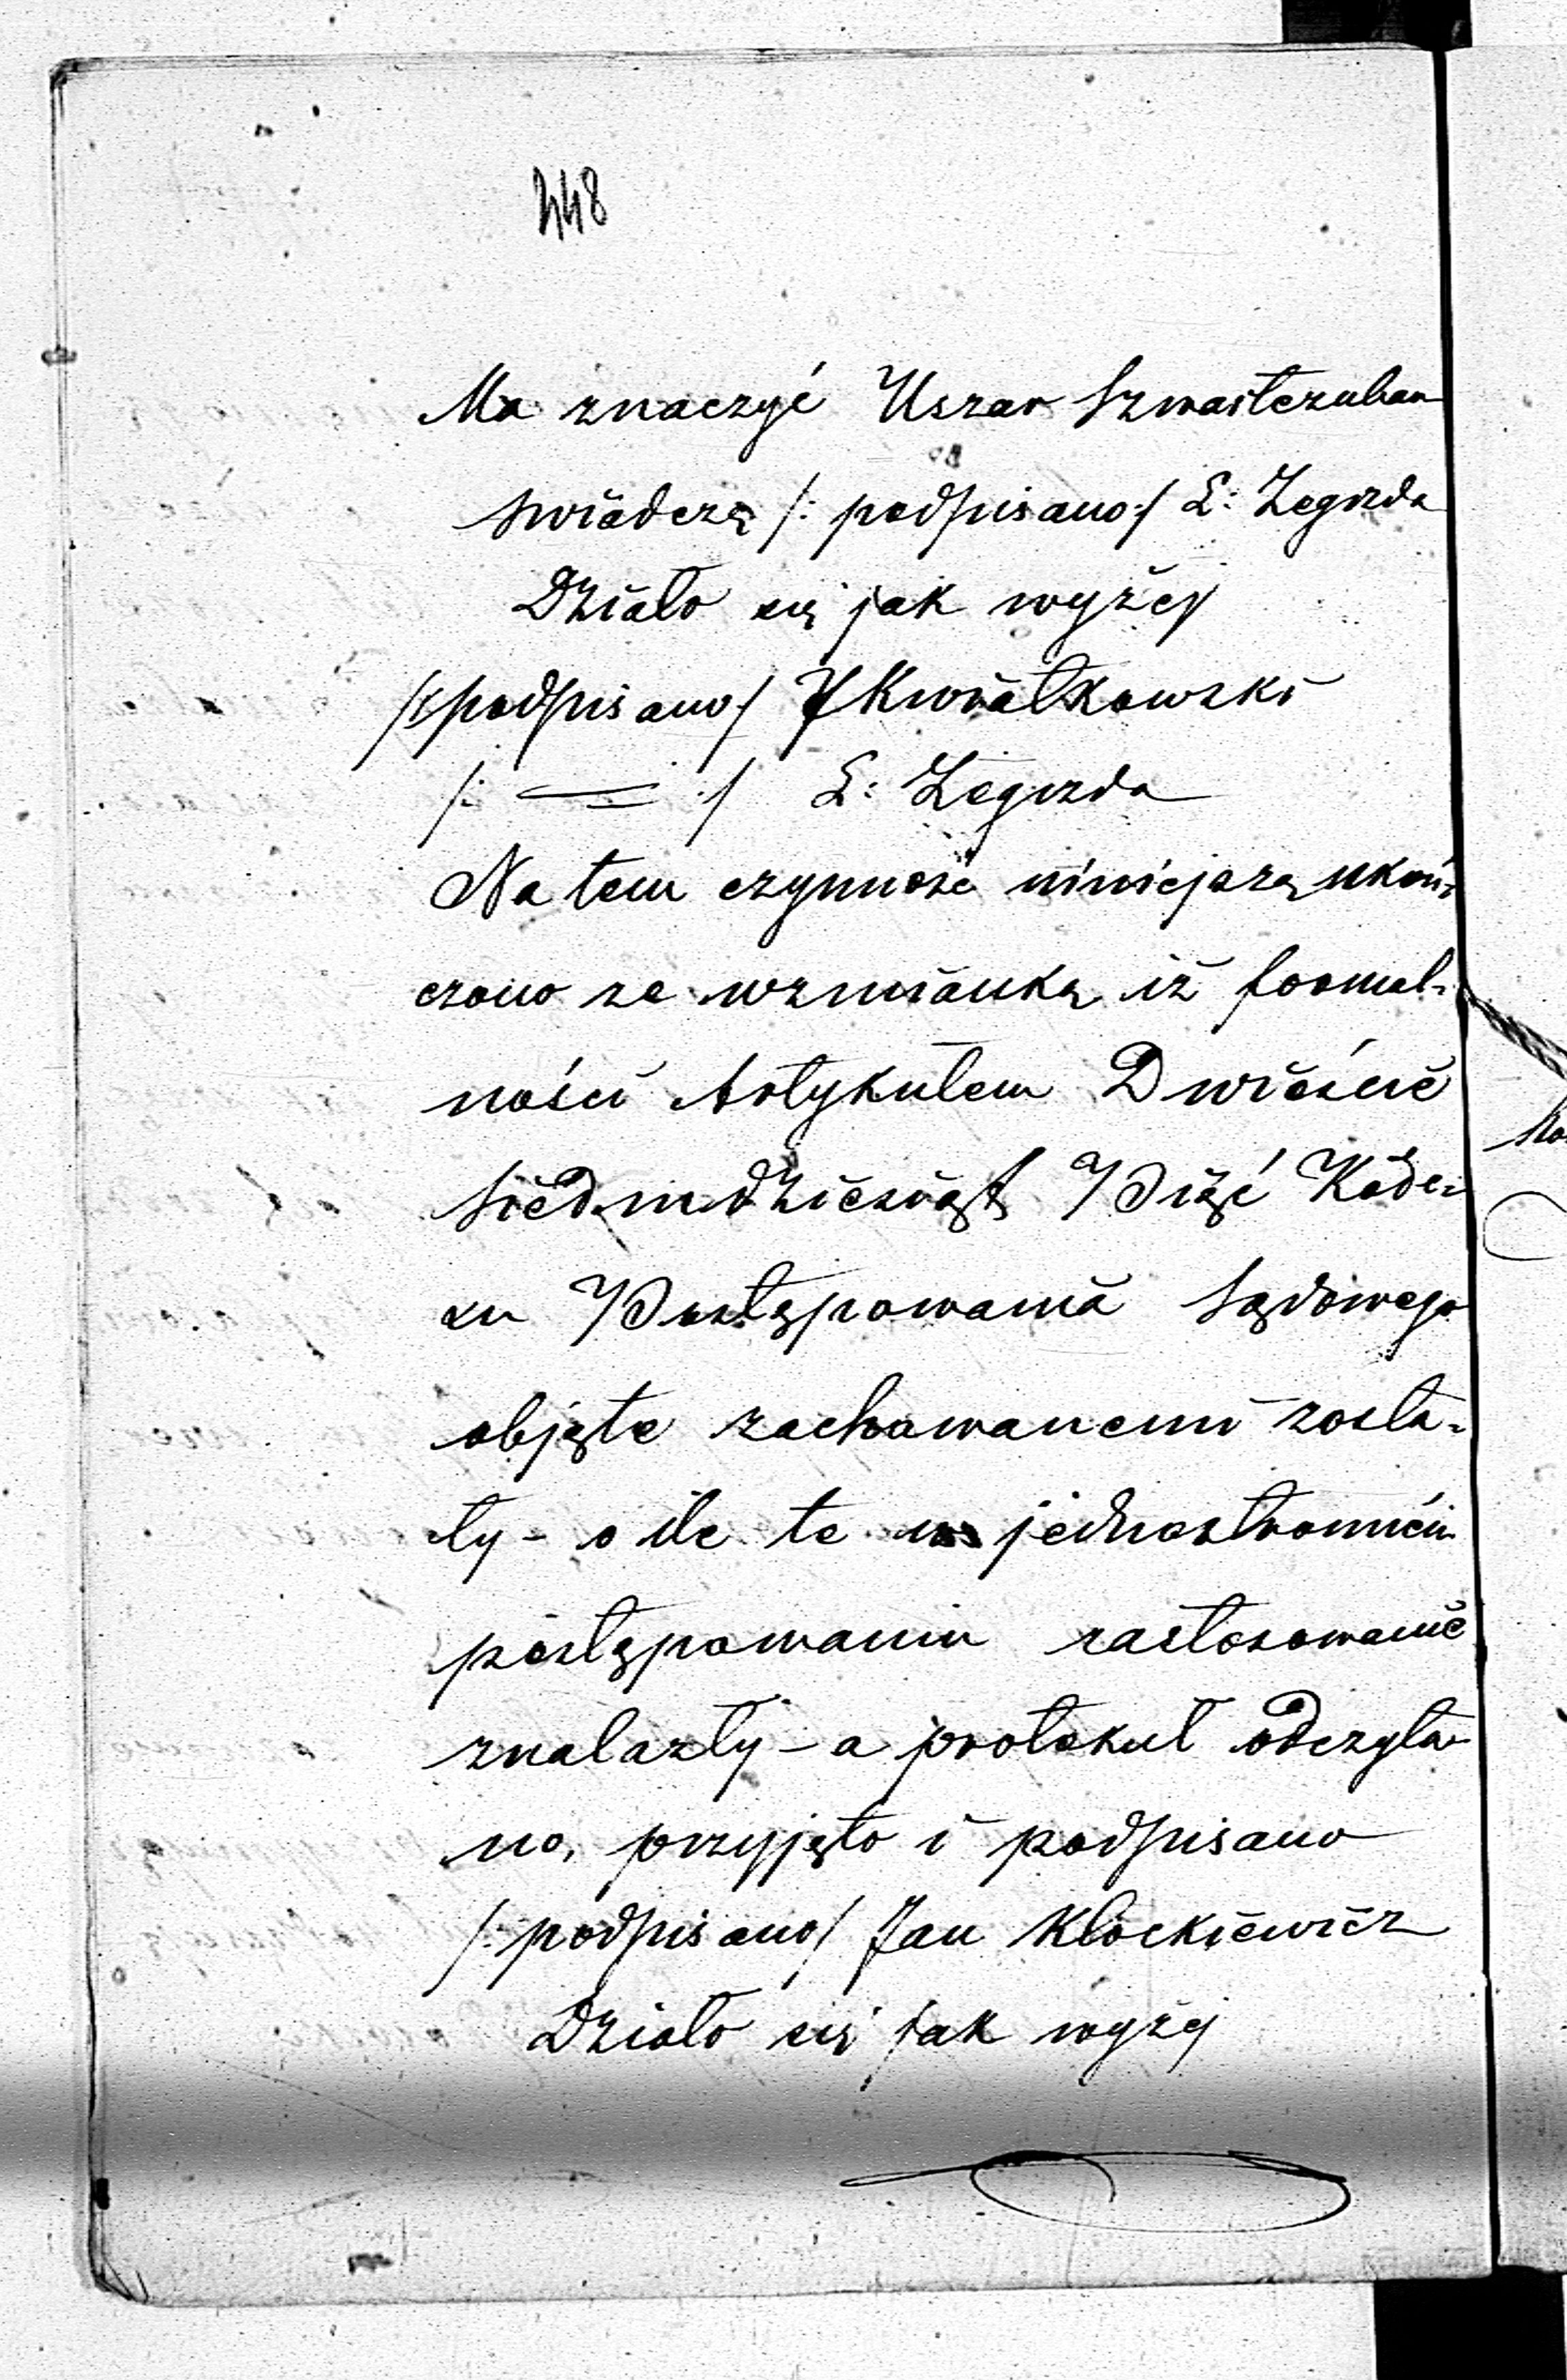 448
Ma znaczyć Uszar Szwartzuban
świadczą /: podpisano :/ L: Zegrzda
Działo się jak wyżej
/: podpisano :/ J Kwiatkowski
/: = :/ L: Zegrzda
Na tem czynność niniejszą ukoń-
czono ze wzmianką iż formal-
ności Artykułem Dwieście
Siedmdziesiąt Pięć Kode-
xu Postępowania Sądowego
objęte zachowanemi zosta-
ły - o ile te w jednostronném
postępowaniu zastosowanie
znalazły - a protokuł odczyta-
no, przyjęto i podpisano
/: podpisano :/ Jan Klockiewicz
Działo się jak wyżej